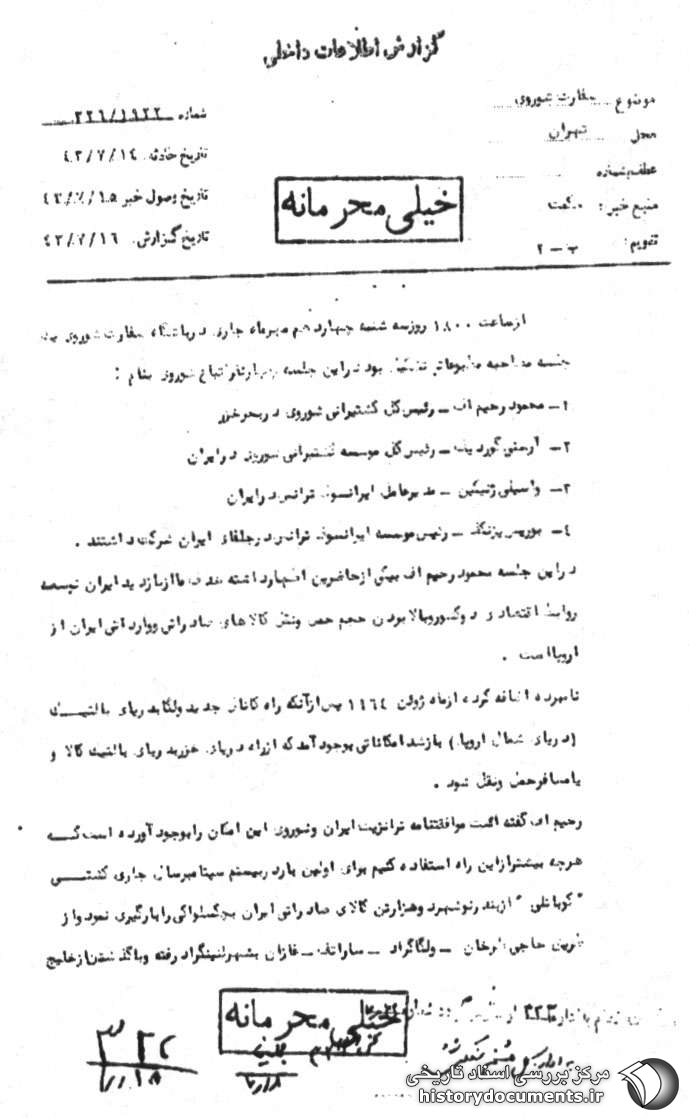 گزارش اطلاعات داخلی
موضوع سفارت شوروی
شماره ۳۲۶/۱۹۲۲
محل تهران
تاریخ حادثه ۴۳/۷/۱۴
عطف بشماره
تاریخ وصول خبر ۴۳/۷/۱۵
منبع خبر :
تاریخ گزارش ۴۳/۷/۱۶
تقویم : ب - ۲
خیلی محرمانه
از ساعت ۱۸۰۰ روز سه شنبه چهاردهم مهرماه جاری در باشگاه سفارت شوروی یک
جلسه مصاحبه مطبوعاتی تشکیل بود در این جلسه چهارنفر اتباع شوروی بنام :
۱- محمود رحیم اف - رئیس کل کشتیرانی شوروی در بحر خزر
۲- رئیس کل موسسه کشتیرانی شوروی در ایران
۳- واسیلی - مدیرعامل ایرانسوف ترانس در ایران
۴- بوریس - رئیس موسسه ایرانسوف ترانس در جلفای ایران شرکت داشتند .
در این جلسه محمود رحیم اف بیکی از حاضرین اظهار داشته هدف ما از بازدید ایران توسعه
روابط اقتصادی دو کشور و بالا بودن حجم حمل و نقل کالاهای صادراتی و وارداتی ایران از
اروپا است .
نامبرده اضافه کرده از ماه ژوئن ۱۹۶۴ پس از آنکه راه کانال جدید ولگا بدریای بالتیک
(دریای شمال اروپا) باز شد امکاناتی بوجود آمد که از راه دریای خزر بدریای بالتیک کالا و
یا مسافر حمل و نقل شود .
رحیم اف گفته است موافقتنامه ترانزیت ایران و شوروی این امکان را بوجود آورده است که
هرچه بیشتر از این راه استفاده کنیم برای اولین بار در بیستم سپتامبر سال جاری کشتی
" از بندر نوشهر دو هزار تن کالای صادراتی ایران بچکسلواکی را بارگیری نمود و از
طریق حاجی طرخان - ولگاگراد - ساراتف - غازان بشهر لنینگراد رفته و با گذشتن از خلیج
خیلی محرمانه
مرکز بررسی اسناد تاریخی
historydocuments.ir